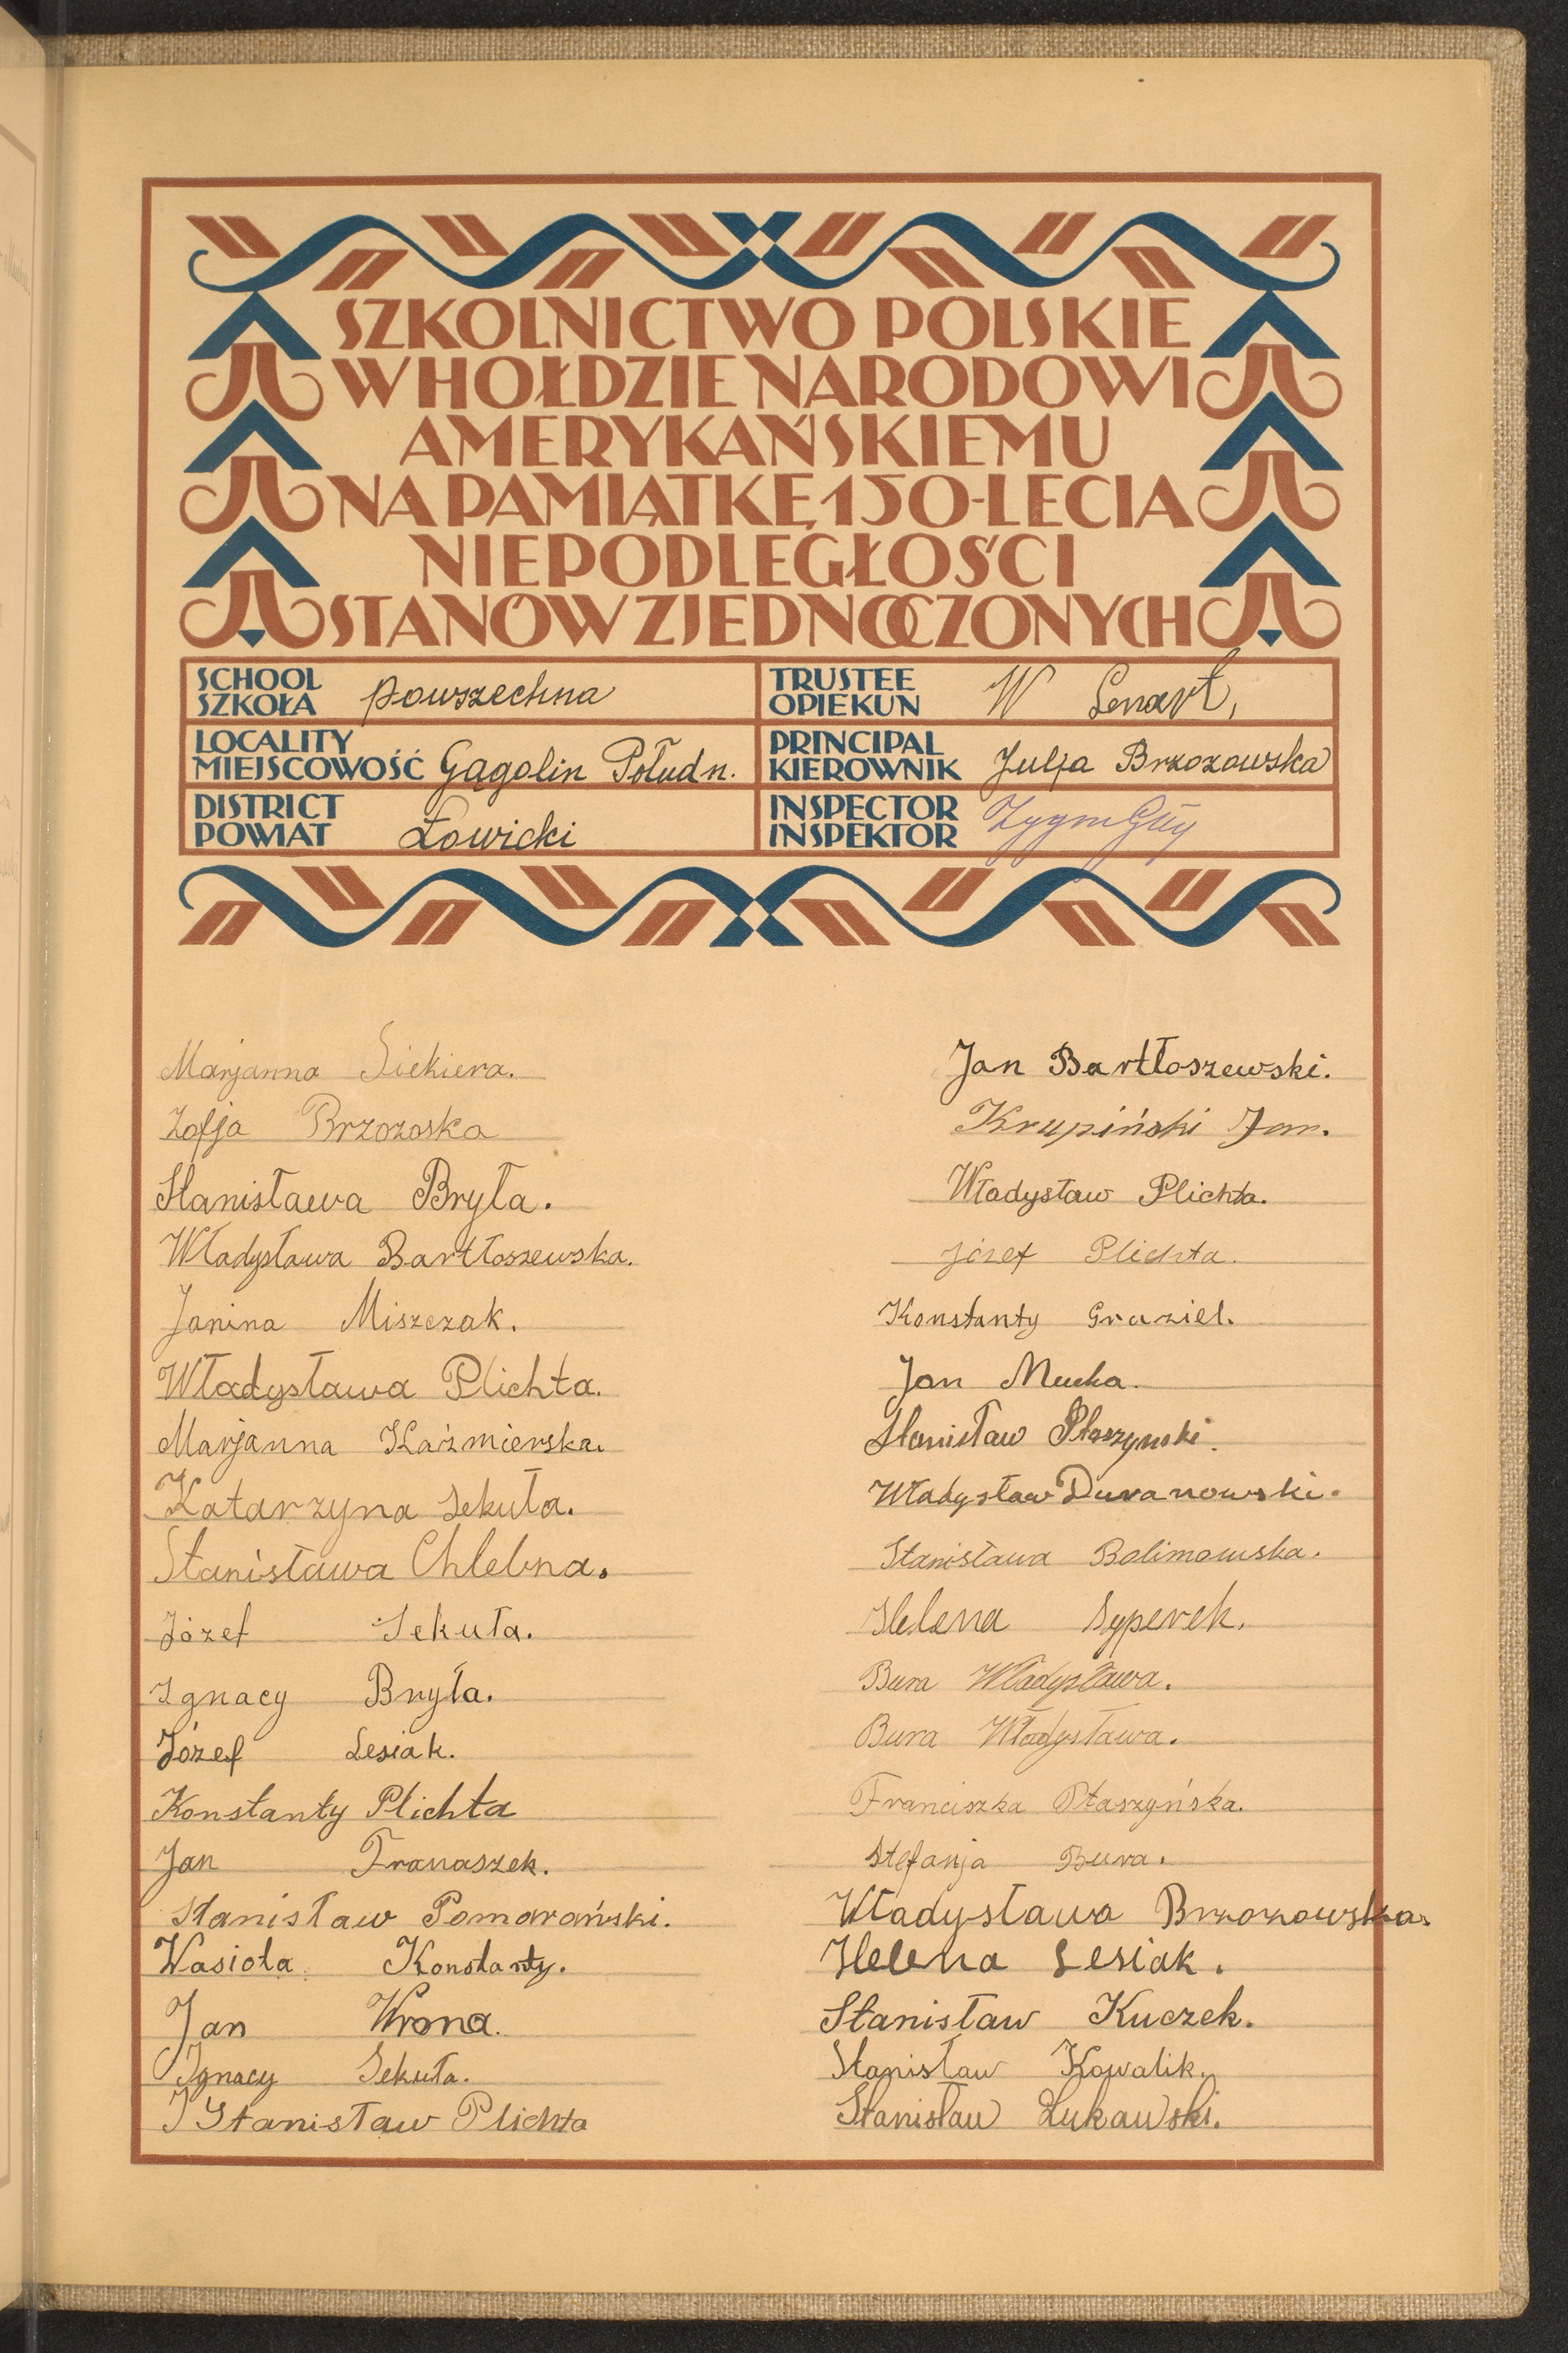 SZKOLNICTWO POLSKIE
W HOŁDZIE NARODOWI
AMERYKAŃSKIEMU
NA PAMIĄTKĘ 150-LECIA
NIEPODLEGŁOŚCI
STANÓW ZJEDNOCZONYCH
SCHOOL
SZKOŁA powszechna
TRUSTEE
OPIEKUN W Lenart,
LOCALITY
MIEJSCOWOŚĆ Gągolin Połudn.
PRINCIPAL
KIEROWNIK Julja Brzozowska
DISTRICT
POWIAT Łowicki
INSPECTOR
INSPEKTOR
Marjanna Siekiera.
Zofja Brzozoska
Stanisława Bryła.
Władysława Bartłoszewska.
Janina Miszczak.
Władysława Plichta.
Marjanna Kaźmierska.
Katarzyna Sekuła.
Stanisława Chlebna.
Józef Sekuła.
Ignacy Bryła.
Józef Lesiak.
Konstanty Plichta
Jan Franaszek.
Stanisław Pomarański.
Wasiota Konstanty.
Jan Wrona.
Ignacy Sekuła.
Stanisław Plichta
Jan Bartłoszewski.
Krupiński Jan.
Władysław Plichta.
Józef Plichta.
Konstanty Graziel.
Jan Mucha.
Stanisław Płaszynski.
Władysław Duranowski.
Stanisława Bolimowska.
Helena Syperek.
Bura Władysława.
Bura Władysława.
Franciszka Płaszyńska.
Stefanja Bura.
Władysława Brzozowska.
Helena Lesiak.
Stanisław Kuczek.
Stanisław Kowalik.
Stanisław Łukawski.